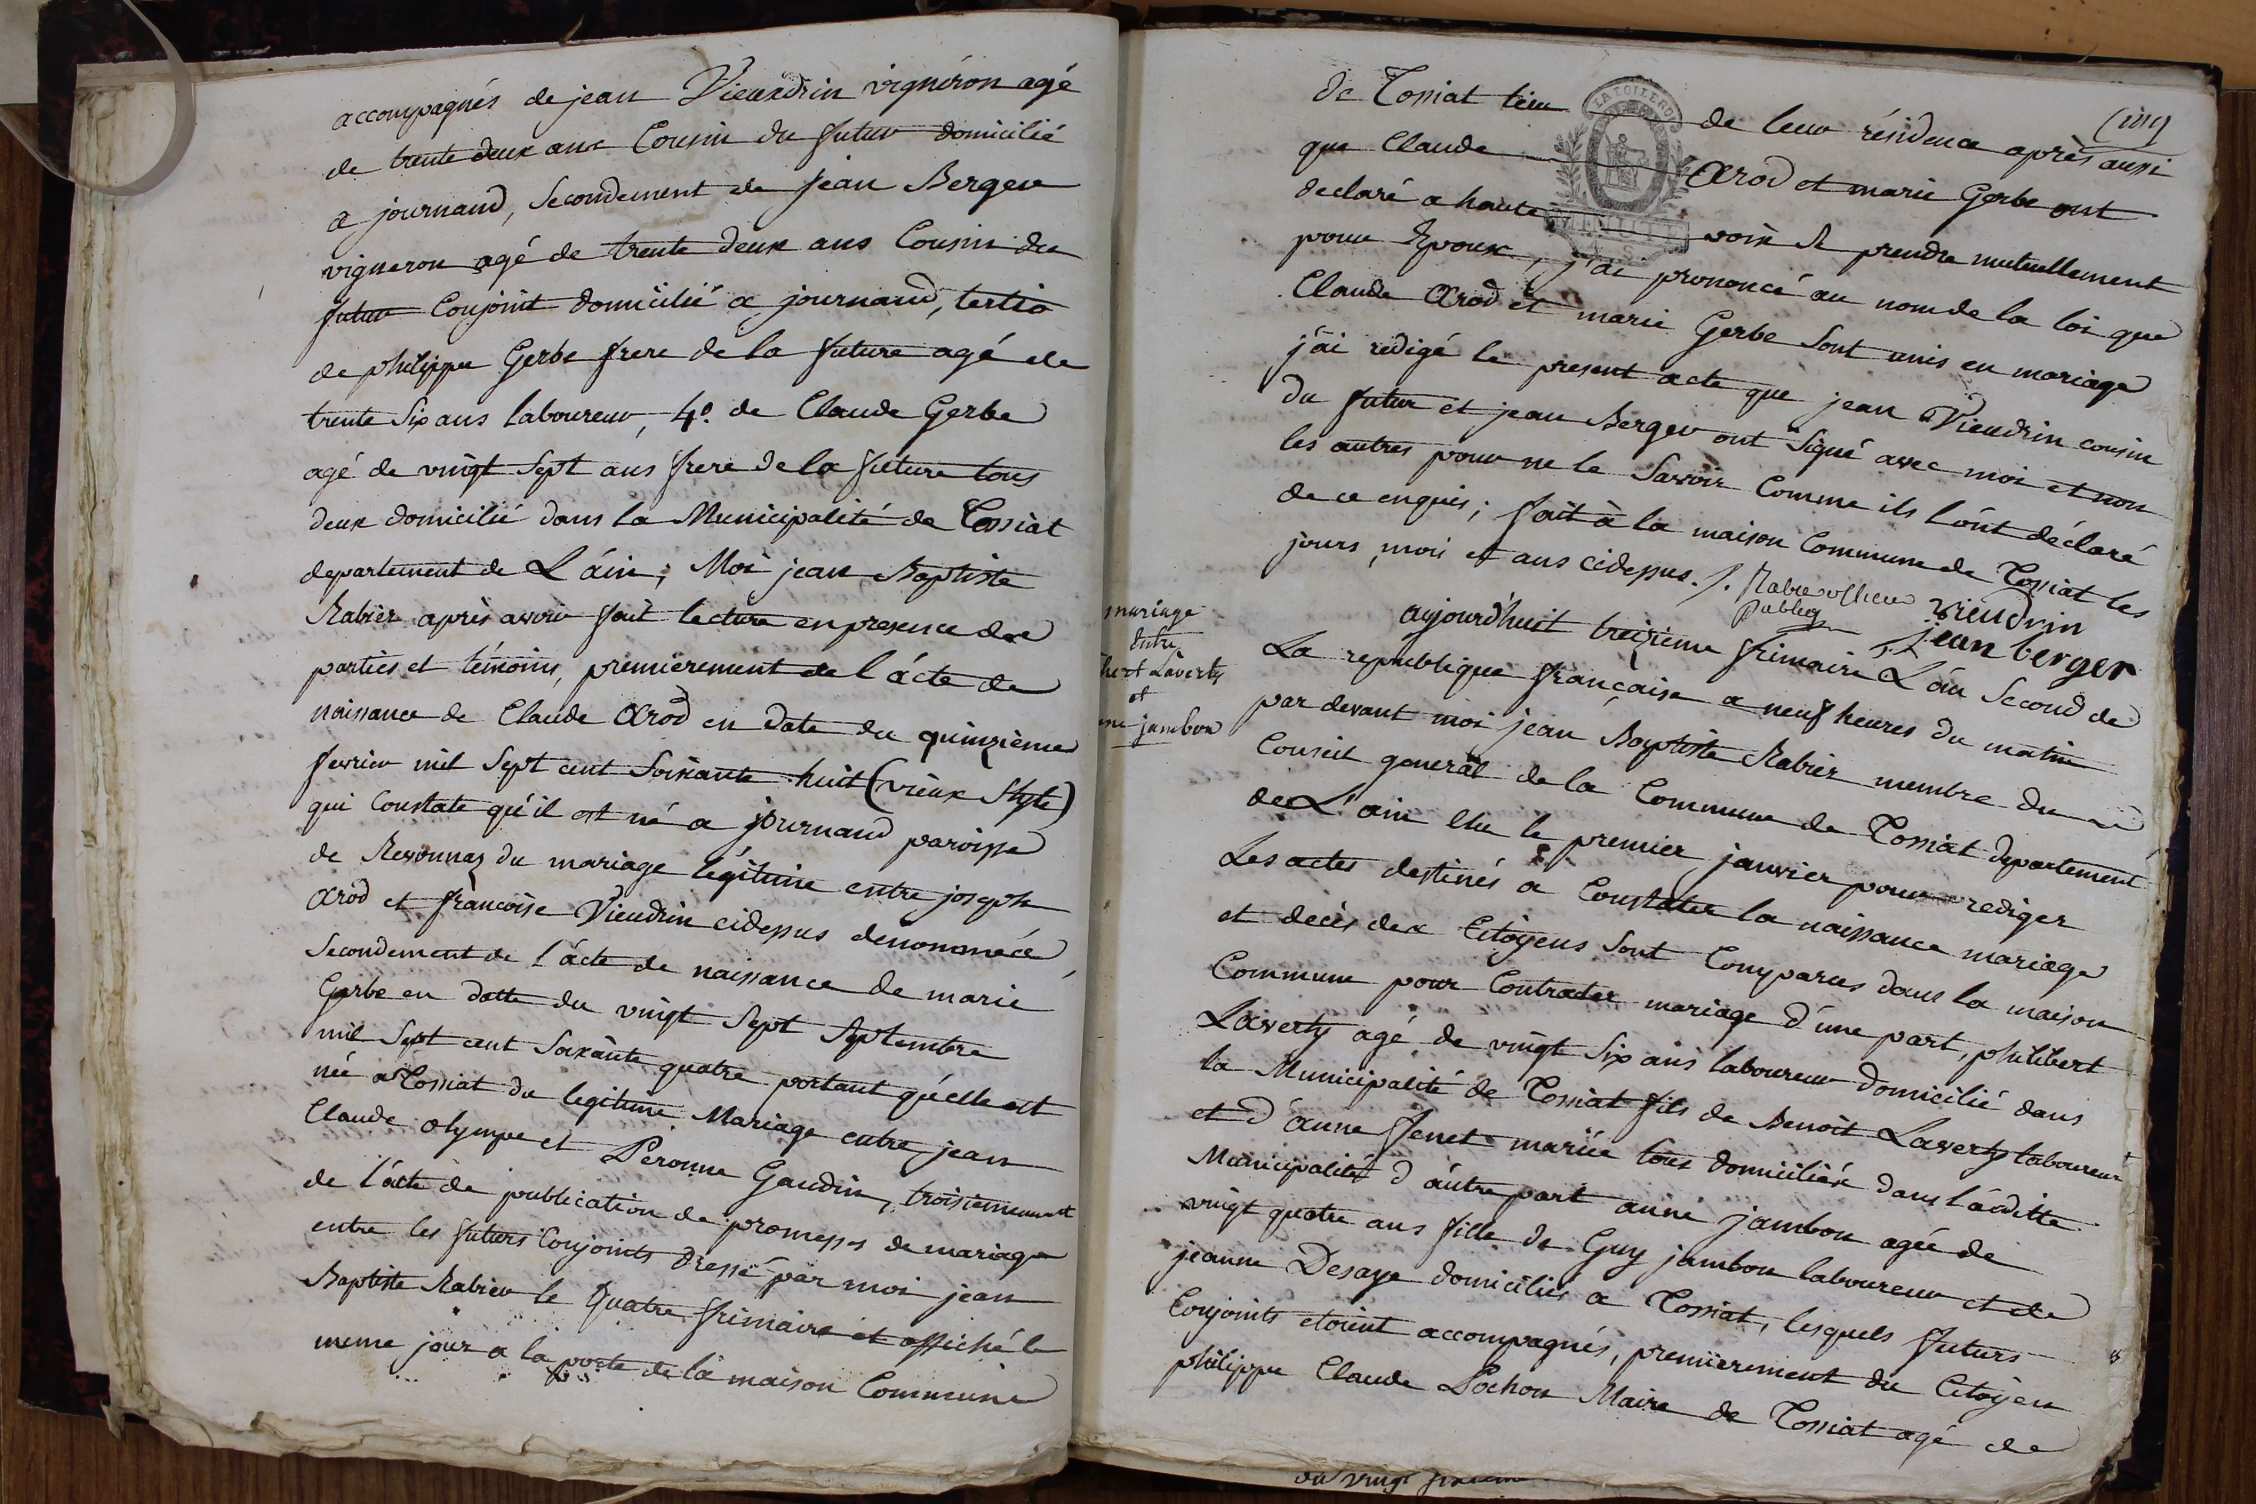 accompagnés de jean Vieudrin vignéron agé
de trente deux ans Cousin du futur domicilié
a journand, Secondement de jean Berger
vigneron agé de trente deux ans Cousin du
futur Conjoint domicilié a journand, tertio
de philippe Gerbe frere de la future agé de
trente Six ans laboureur, 4.° de Claude Gerbe
agé de vingt Sept ans frere de la future tous
deux domicilié dans la Municipalité de Tossiat
departement de L'áin, Moi jean Baptiste
Rabier après avoir fait lecture en presence des
parties et témoins, premièrement de l'ácte de
naissance de Claude Arod en date du quinzième
fevrier mil Sept cent Soixante-huit (vieux Style)
qui Constate qu'il est né a journand paroisse
de Revonnas du mariage légitime entre joseph
Arod et françoise Vieudrin cidessus dénommée,
Secondement de l'ácte de naissance de marie
Gerbe en datte du vingt Sept Septembre
mil Sept cent Soixante quatre portant qu'elle est
née a Tossiat du legitime Mariage entre jean
Claude olympe et Péronne Gaudin, troisiemement
de l'ácte de publication de promesses de mariage
entre les futurs Conjoints dressé par moi jean
Baptiste Rabier le quatre frimaire et affiché le
meme jour a la porte de la maison Commune
Cinq
de Tossiat lieu de leur résidence après aussi
que Claude Arod et marie Gerbe ont
declaré a haute voix Se prendre mutuellement
pour Epoux, j'ai prononcé au nom de la loi que
Claude Arod et marie Gerbe Sont unis en mariage
j'ai redigé le present acte que jean Vieudrin cousin
du futur et jean Berger ont Signé avec moi et non
les autres pour ne le Savoir Comme ils l'ónt déclaré
de ce enquis; fait à la maison Commune de Tossiat les
jours, mois et ans cidessus. Rabier officier vieudrin
public jean berger
mariage
entre
Laverty
et
jambon
aujourd'huit treizième frimaire L'án Second de
La republique française a neuf heures du matin
par devant moi jean Baptiste Rabier membre du
Conseil general de la Commune de Tossiat departement
de L'ain Elu le premier janvier pour rediger
Les actes destinés a Constater la naissance mariage
et decès des Citoyens Sont Comparus dans la maison
Commune pour Contracter mariage d'une part, philibert
Laverty agé de vingt Six ans laboureur domicilié dans
la Municipalité de Tossiat fils de Benoit Laverty laboureur
et d'ánne fenet mariée tous domiciliés dans láditte
Municipalité d'aútre part anne jambon agée de
vingt quatre ans fille de Guy jambon laboureur et de
jeanne Desaye domiciliés a Tossiat, lesquels futurs
Conjoints etoient accompagnés, premièrement du Citoyen
philippe Claude Pochon Maire de Tossiat agé de